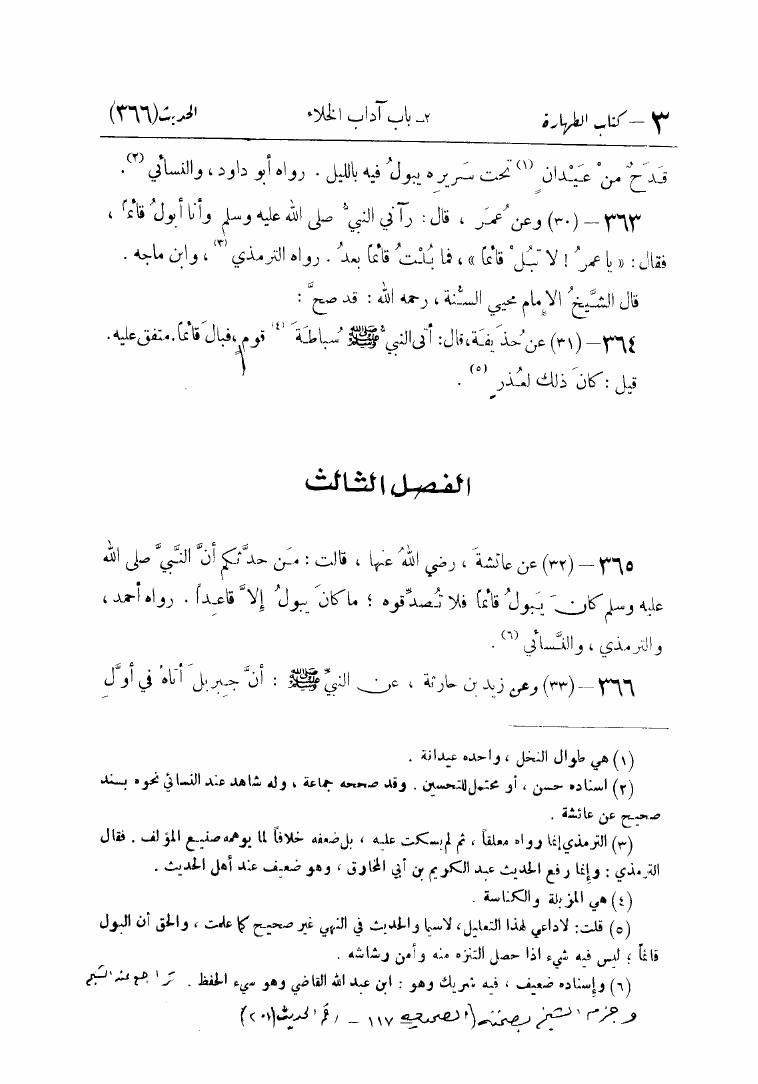 ٣ – كتاب الطهارة ٢ـ باب آداب الخلاء الحديث (٣٦٦)
قَدَحٌ منْ عَيْدانٍ (١) تحت سَريرِه يبولُ فيه بالليل . رواه أبو داود ، والنسائي (٢) .
٣٦٣ – (٣٠) وعن عُمَرَ ، قال : رآني النبيُّ صلى الله عليه وسلم وأنا أبولُ قائماً ،
فقال : « يا عمرُ ! لا تبُلْ قائماً » ، فما بُلْتُ قائماً بعدُ . رواه الترمذي (٣) ، وابن ماجه .
قال الشَّيخُ الإمام محيي السُّنة ، رحمه الله : قد صحَّ :
٣٦٤ – (٣١) عن حُذَيفَة ، قال : أتى النبيُّ ﷺ سُباطَةَ (٤) قومٍ ، فبالَ قائماً . متفق عليه .
قيل : كانَ ذلك لعُذرٍ (٥) .
الفصل الثالث
٣٦٥ – (٣٢) عن عائشةَ ، رضي اللهُ عنها ، قالت : مَن حدَّثكم أنَّ النَّبيَّ صلى الله
عليه وسلم كانَ يَبولُ قائماً فلا تُصدِّقوه ؛ ما كانَ يبولُ إلاَّ قاعِداً . رواه أحمد ،
والترمذي ، والنَّسائي (٦) .
٣٦٦ – (٣٣) وعن زيدِ بن حارثة ، عن النبيِّ ﷺ : أنَّ جبريلَ أتاهُ في أوَّلِ
(١) هي طوال النخل ، واحده عيدانة .
(٢) اسناده حسن ، أو محتمل للتحسين . وقد صححه جماعة ، وله شاهد عند النسائي نحوه بسند
صحيح عن عائشة .
(٣) الترمذي إنما رواه معلقاً ، ثم لم يسكت عليه ، بل ضعفه خلافاً لما يوهمه صنيع المؤلف . فقال
الترمذي : وإنما رفع الحديث عبد الكريم بن أبي المخارق ، وهو ضعيف عند أهل الحديث .
(٤) هي المزبلة والكناسة .
(٥) قلت : لا داعي لهذا التعليل، لاسيا والحديث في النهي غير صحيح كما علمت ، والحق أن البول
قائماً ؛ ليس فيه شيء اذا حصل التنزه منه وأمن رشاشه .
(٦) وإسناده ضعيف ، فيه شريك وهو : ابن عبد الله القاضي وهو سيء الحفظ . تراجع عنه الشيخ
وجزم الشيخ بصحته (الصحيحه ١١٧ – رقم الحديث (٢٠١)